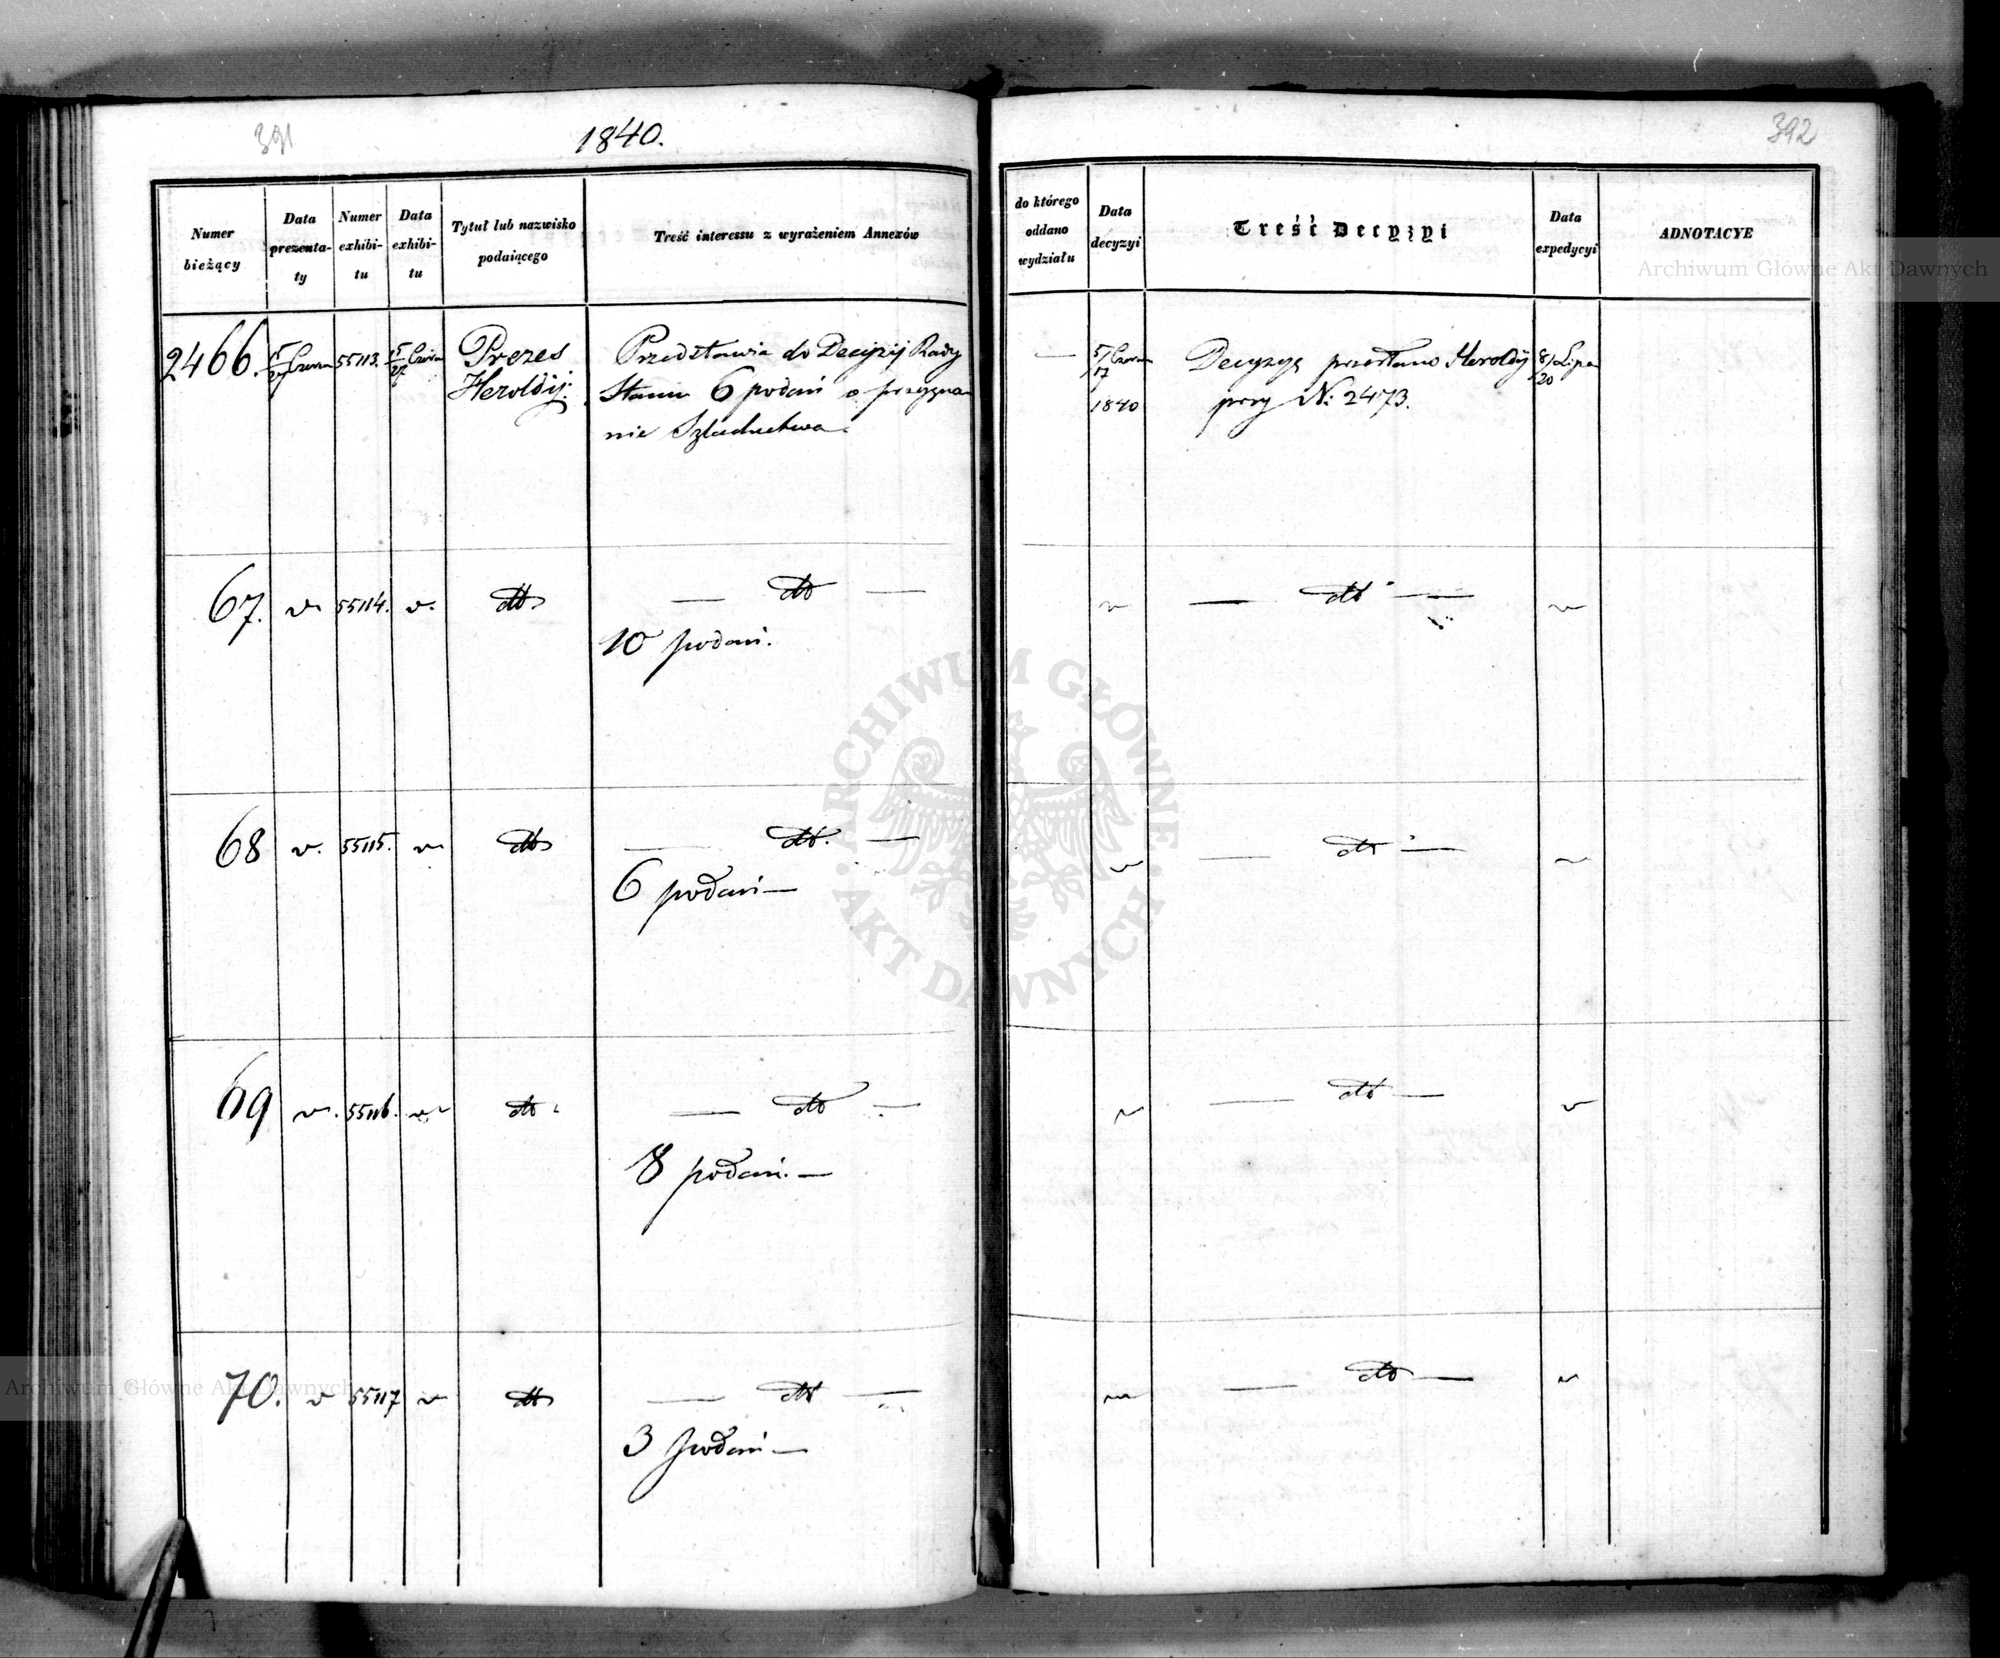 391
1840.
392
Numer bieżący
Data prezenta-ty
Numer exhibi-tu
Data exhibi-tu
Tytuł lub nazwisko podaiącego
Treść interessu z wyrażeniem Annexów
do którego oddano wydziału
Data decyzyi
Treść Decyzyi
Data expedycyi
ADNOTACYE
Archiwum Główne Akt Dawnych
2466. 55113. Prezes Heroldij:
Przedstawia do Decyzij Rady
Stanu 6 podań o przyzna
nie Szlachectwa.
— 5/17 1840
Decyzyą przesłano Heroldij
przy N: 2473.
8/20 Lipca
67. v. 55114. v. dto — dto —
10 podań.
v — dto — v
68 v. 55115. v. dto — dto. —
6 podań —
v — dto — v
69 v. 55116. v. dto — dto —
8 podań. —
v — dto — v
70. v 55117 v dto — dto —
3 podań —
v — dto — v
ARCHIWUM GŁÓWNE
AKT DAWNYCH
Archiwum Główne Akt Dawnych